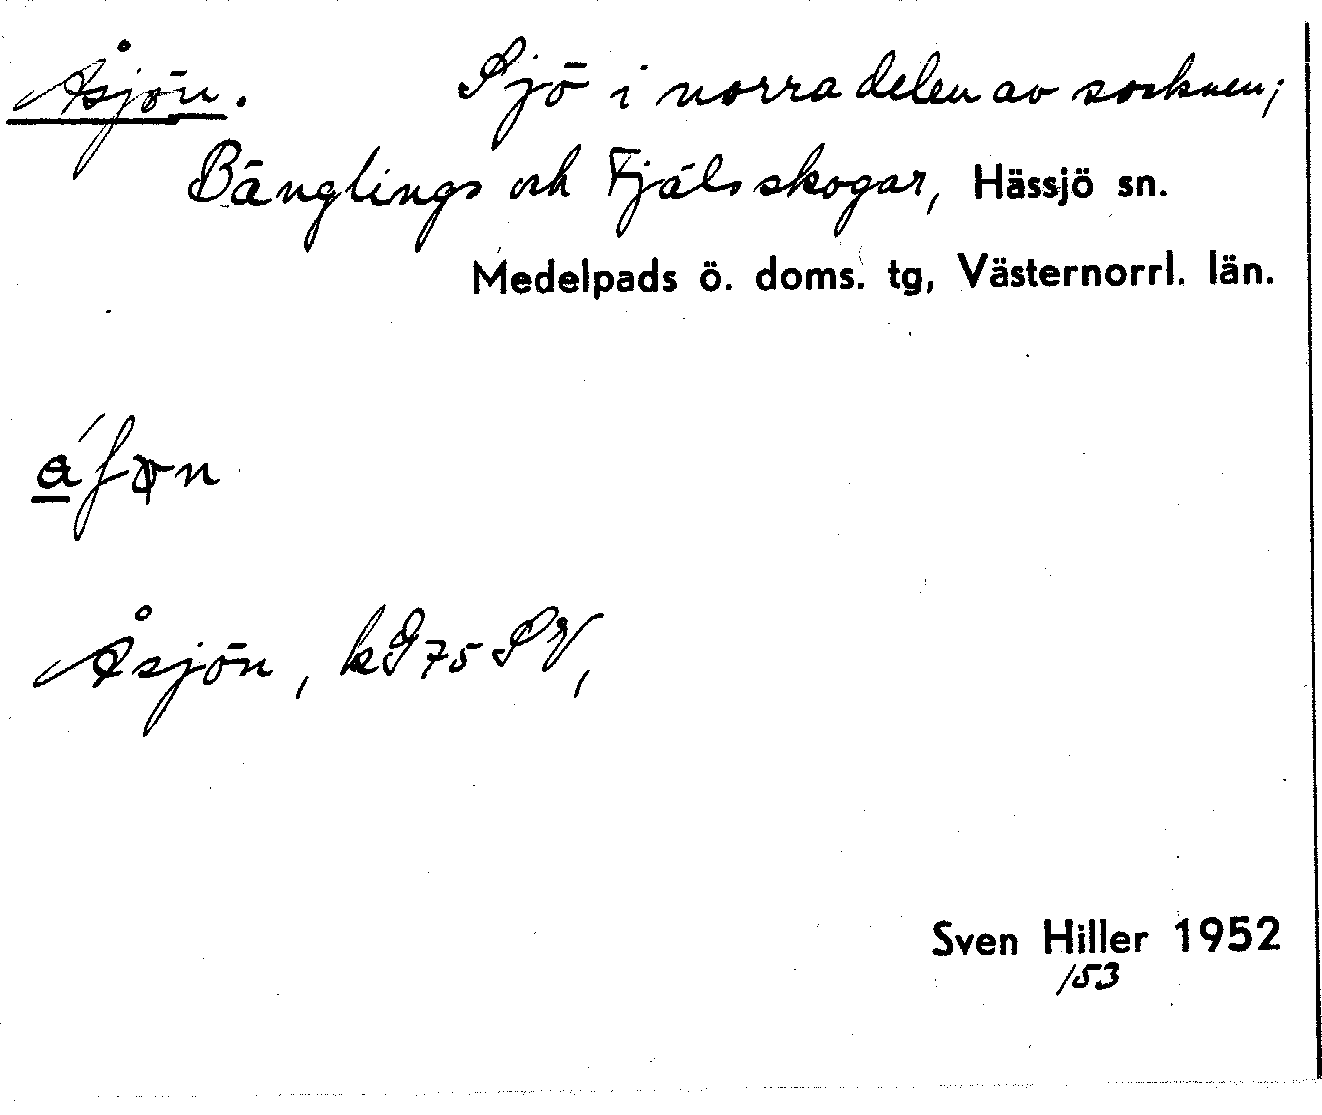 Åsjön. Sjö i norra delen av socknen;
Bänglings och Fjäls skogar, Hässjö sn.
Medelpads ö. doms. tg, Västernorrl. län.
Åsjön, kG75SV,
Sven Hiller 1952
/53